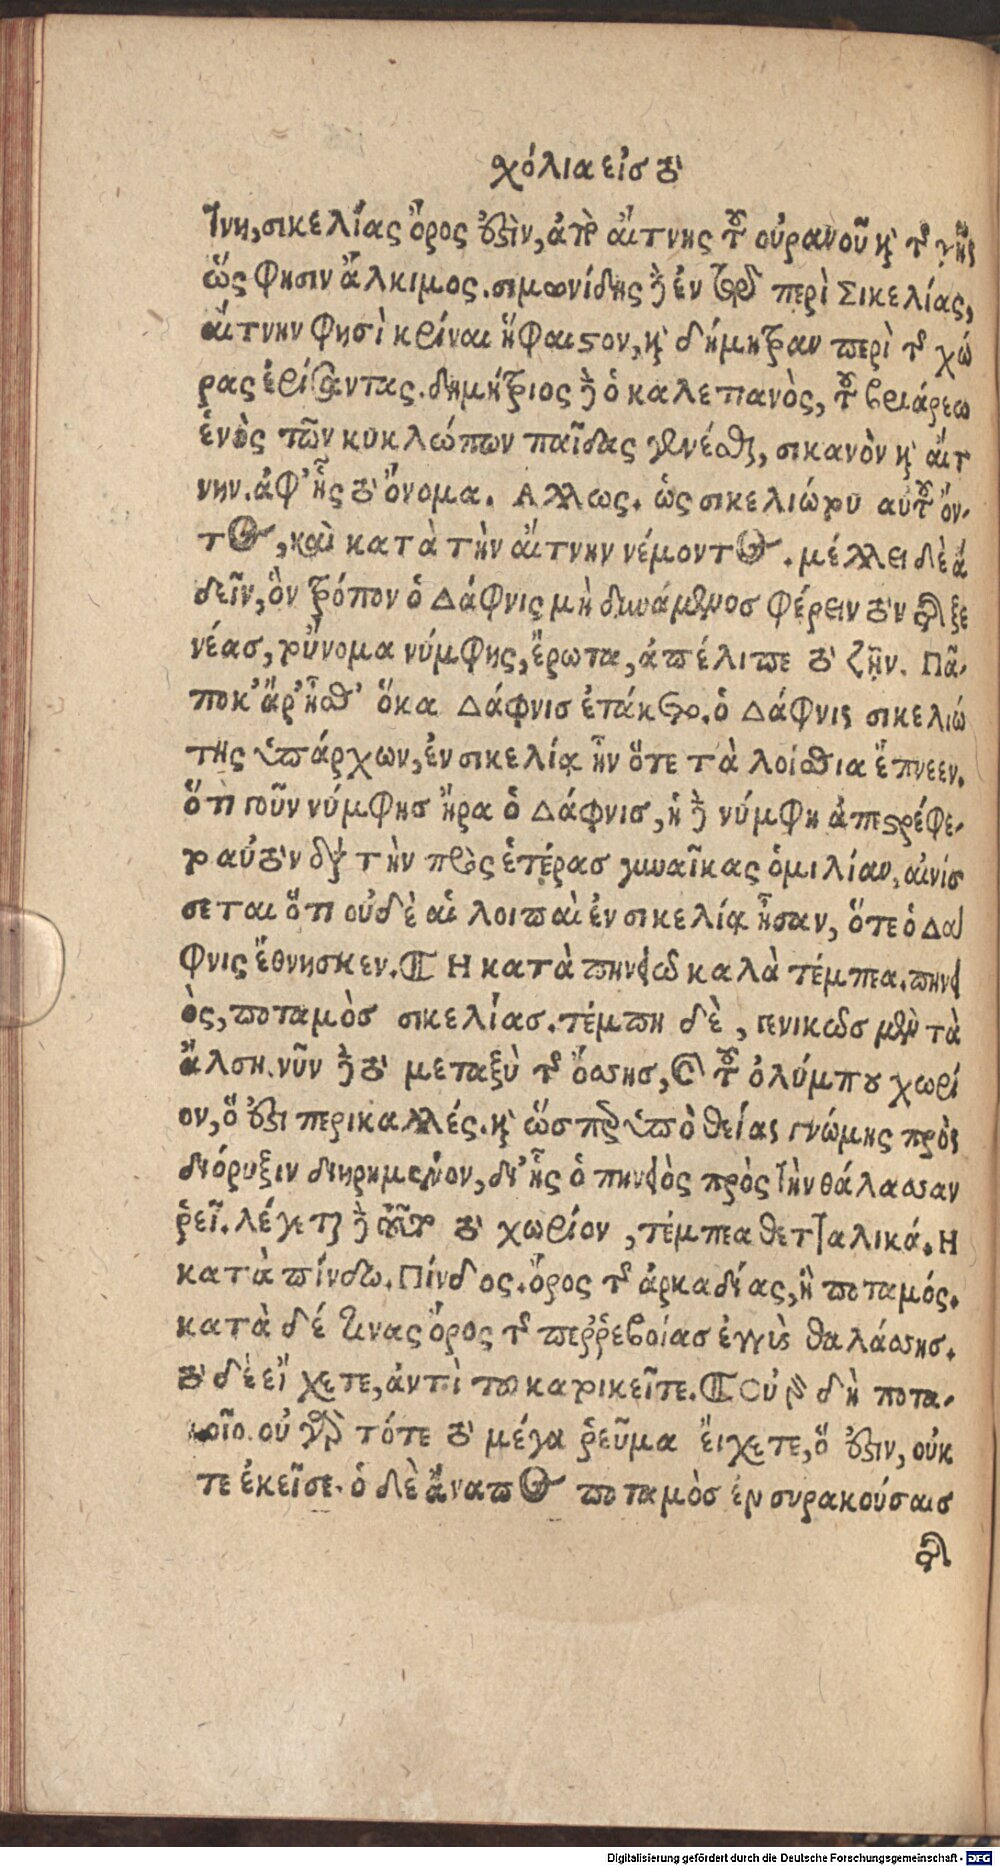 σχόλια εἰσ τὸ
τνη, σικελίας ὄρος ἐστὶν, ἀπὸ αἴτνης τοῦ οὐρανοῦ καὶ τῆς γῆς
ὥς φησιν ἄλκιμος. σιμωνίδης δὲ ἐν τῷ περὶ Σικελίας,
αἴτνην φησὶ κρίναι ἥφαιστον, καὶ δήμητραν περὶ τῆς χώ
ρας ἐρίσαντας. δημήτριος δὲ ὁ καλεπανὸς, τοῦ βριάρεω
ἑνὸς τῶν κυκλώπων παῖδας γενέσθαι, σικανὸν καὶ αἴτ
νην. ἀφ' ἧς τὸ ὄνομα. Αλλως. ὡς σικελιώρυ αὐτοῦ ὄν-
τος, καὶ κατὰ τὴν αἴτνην νέμοντος. μέλλει δὲ ἀ
δεῖν, ὃν τρόπον ὁ Δάφνις μὴ δυνάμενοσ φέρειν τὸν τῆς ξε
νέασ, ρὔνομα νύμφης, ἔρωτα, ἀπέλιπε τὸ ζῆν. Πᾶ-
ποκ' ἄρ' ἦσθ' ὅκα Δάφνισ ἐτάκετο. ὁ Δάφνις σικελιώ
της ὑπάρχων, ἐν σικελίᾳ ἦν ὅτε τὰ λοίσθια ἔπνεεν.
ὅτι γοῦν νύμφησ ἤρα ὁ Δάφνισ, ἡ δὲ νύμφη ἀπεστρέφε-
το αὐτὸν διὰ τὴν πρὸς ἑτέρασ γυναῖκας ὁμιλίαν, αἰνίσ
σεται ὅτι οὐδὲ αἱ λοιπαὶ ἐν σικελίᾳ ἦσαν, ὅτε ὁ Δα
φνις ἔθνησκεν. ¶ Η κατὰ πηνειῶ καλὰ τέμπεα. πηνει
ὸς, ποταμὸσ σικελίας. τέμπη δὲ, γενικῶσ μὲν τὰ
ἄλση. νῦν δὲ τὸ μεταξὺ τῆς ὄσσησ, καὶ τοῦ ὀλύμπου χωρί
ον, ὅ ἐστι περικαλλές. καὶ ὥσπερ ὑπὸ θείας γνώμης πρὸς
διόρυξιν διῃρημένον, δι' ἧς ὁ πηνειὸς πρὸς τὴν θάλασσαν
ῥεῖ. λέγεται δὲ οὖν τὸ χωρίον, τέμπεα θετταλικά. Η
κατὰ πίνδω. Πίνδος. ὄρος τῆς ἀρκαδίας, ἢ ποταμός.
κατὰ δέ τινας ὄρος τῆς περῥεβοίας ἐγγὺς θαλάσσησ.
τὸ δὲ εἴχετε, ἀντὶ τοῦ κατῳκεῖτε. ¶ Οὐ γὰρ δὴ ποτα-
μοῖο. οὐ γὰρ τότε τὸ μέγα ῥεῦμα εἴχετε, ὅ ἐστιν, οὐκ
τε ἐκεῖσε. ὁ δὲ ἄναπος ποταμὸσ ἐν συρακούσαισ
τῆς